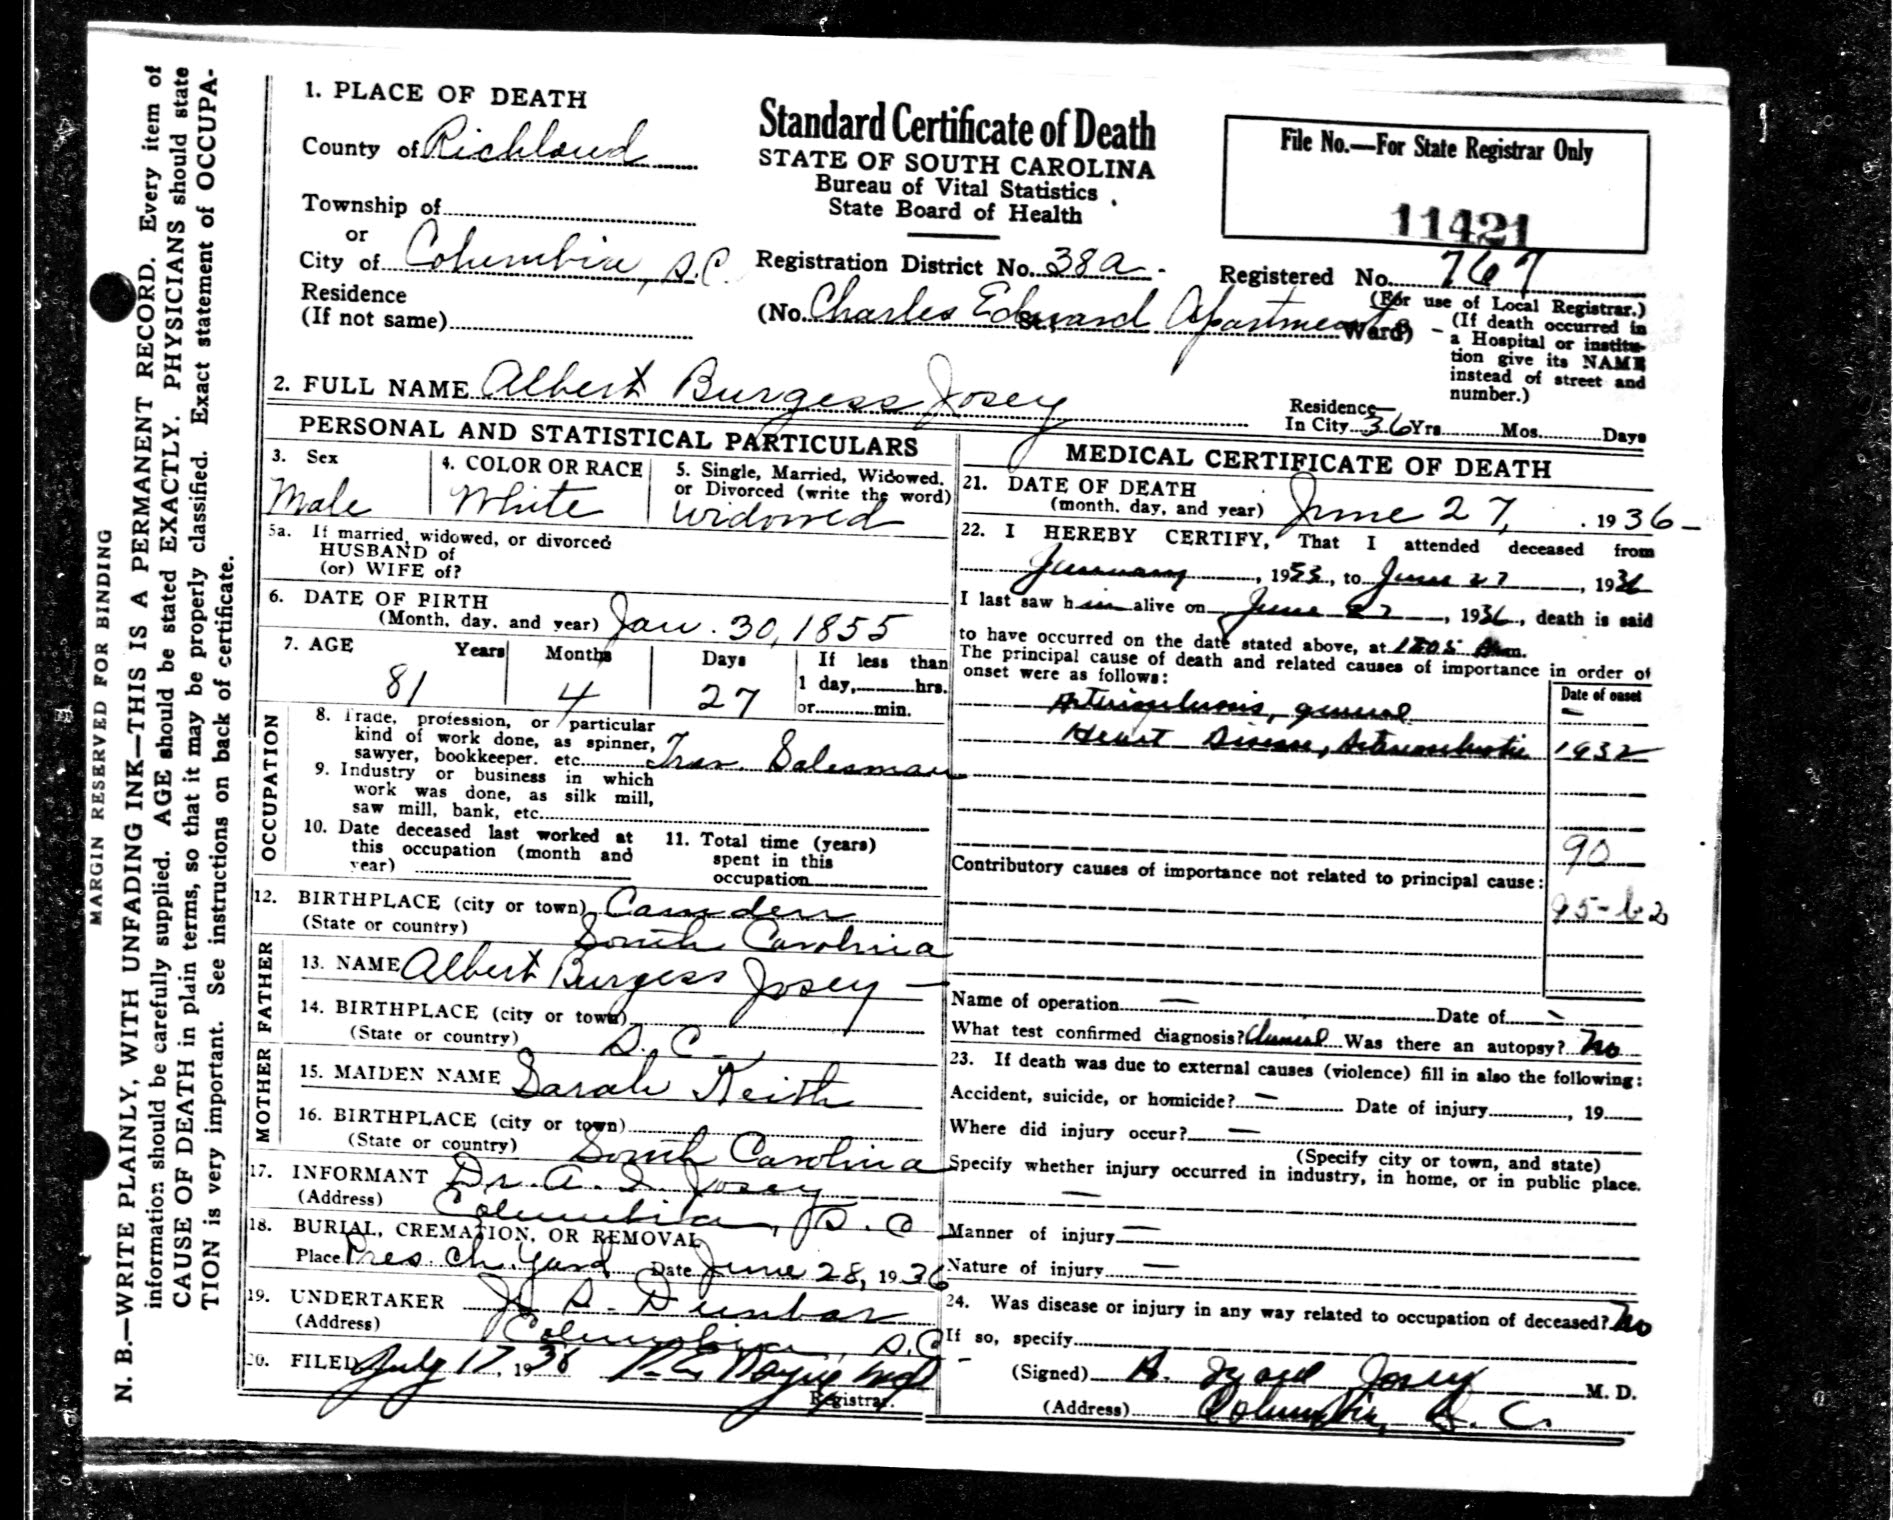 N. B.—WRITE PLAINLY, WITH UNFADING INK—THIS IS A PERMANENT RECORD. Every item of
information should be carefully supplied. AGE should be stated EXACTLY. PHYSICIANS should state
CAUSE OF DEATH in plain terms, so that it may be properly classified. Exact statement of OCCUPA-
TION is very important. See instructions on back of certificate.
MARGIN RESERVED FOR BINDING
1. PLACE OF DEATH
County of Richland
Township of
or
City of Columbia, S.C.
Residence
(If not same)
Standard Certificate of Death
STATE OF SOUTH CAROLINA
Bureau of Vital Statistics
State Board of Health
Registration District No. 38a -
(No. Charles Edward Apartments St., Ward) -
File No.—For State Registrar Only
11421
Registered No. 767
(For use of Local Registrar.)
(If death occurred in
a Hospital or institu-
tion give its NAME
instead of street and
number.)
2. FULL NAME Albert Burgess Josey
Residence—
In City 36 Yrs. Mos. Days
PERSONAL AND STATISTICAL PARTICULARS
3. Sex
Male
4. COLOR OR RACE
White
5. Single, Married, Widowed,
or Divorced (write the word)
Widowed
5a. If married, widowed, or divorced
HUSBAND of
(or) WIFE of?
6. DATE OF BIRTH
(Month, day, and year) Jan. 30, 1855
7. AGE Years Months Days If less than
1 day, hrs.
or min.
81 4 27
OCCUPATION
8. Trade, profession, or particular
kind of work done, as spinner,
sawyer, bookkeeper, etc. Trav. Salesman
9. Industry or business in which
work was done, as silk mill,
saw mill, bank, etc.
10. Date deceased last worked at
this occupation (month and
year)
11. Total time (years)
spent in this
occupation
12. BIRTHPLACE (city or town) Camden
(State or country) South Carolina
FATHER
13. NAME Albert Burgess Josey —
14. BIRTHPLACE (city or town)
(State or country) S. C. -
MOTHER
15. MAIDEN NAME Sarah Keith
16. BIRTHPLACE (city or town)
(State or country) South Carolina
17. INFORMANT Dr. A. I. Josey
(Address) Columbia, S. C
18. BURIAL, CREMATION, OR REMOVAL
Place Pres. Ch. Yard Date June 28, 1936
19. UNDERTAKER J. S. Dunbar
(Address) Columbia, S.C. -
20. FILED July 17, 1936
Registrar.
MEDICAL CERTIFICATE OF DEATH
21. DATE OF DEATH
(month, day, and year) June 27, 1936 -
22. I HEREBY CERTIFY, That I attended deceased from
January, 19 , to June 27, 1936
I last saw him alive on June 27, 1936, death is said
to have occurred on the date stated above, at m.
The principal cause of death and related causes of importance in order of
onset were as follows:
Date of onset
Arteriosclerosis, general —
Heart Disease, Arteriosclerotic 1932
90
Contributory causes of importance not related to principal cause:
Name of operation — Date of —
What test confirmed diagnosis? Clinical Was there an autopsy? No
23. If death was due to external causes (violence) fill in also the following:
Accident, suicide, or homicide? — Date of injury , 19
Where did injury occur? —
(Specify city or town, and state)
Specify whether injury occurred in industry, in home, or in public place.
—
Manner of injury —
Nature of injury —
24. Was disease or injury in any way related to occupation of deceased? No
If so, specify
(Signed) A. Izard Josey M. D.
(Address) Columbia, S. C.